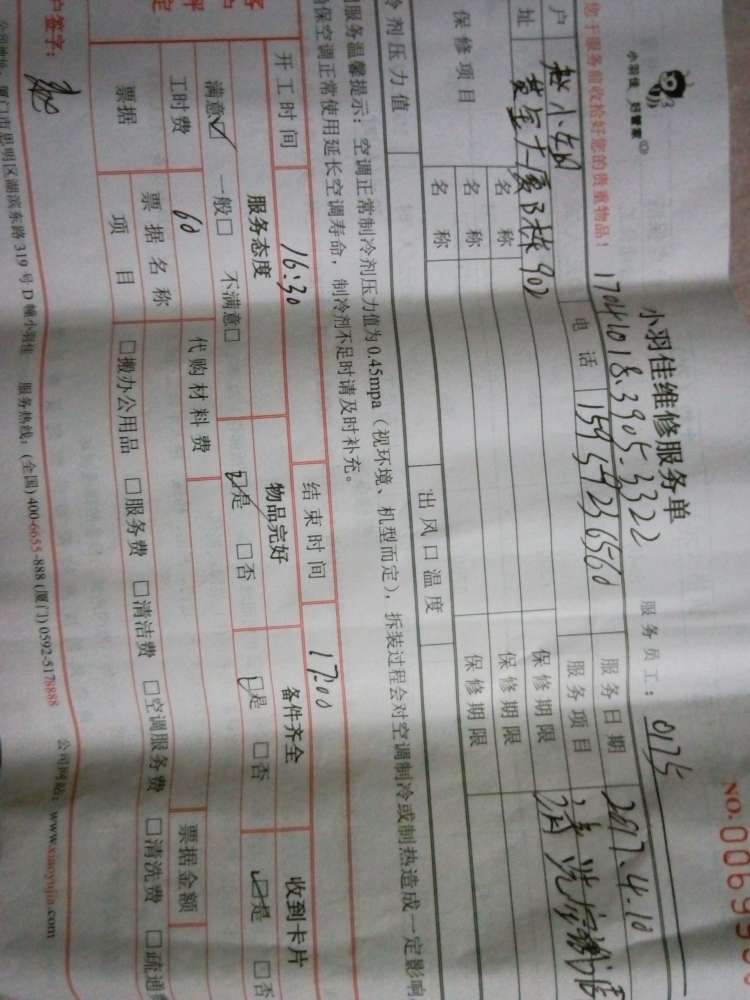 小羽佳 好管家
您于服务前收拾好您的贵重物品!
小羽佳维修服务单
NO.
17041018.3905-3322
服务员工: 0175
户 赵小姐 电话 15959236560 服务日期 2017.4.10
址 黄金大厦B栋902 服务项目 清洗空调
保修项目 名称 保修期限
名称 保修期限
名称 保修期限
冷剂压力值 出风口温度
服务温馨提示:空调正常制冷剂压力值为0.45mpa(视环境、机型而定),拆装过程会对空调制冷或制热造成一定影响
保空调正常使用延长空调寿命,制冷剂不足时请及时补充。
开工时间 16:30 结束时间 17:00
服务态度 物品完好 备件齐全 收到卡片
满意☑ 一般□ 不满意□ ☑是 □否 ☑是 □否 ☑是 □否
工时费 60 代购材料费
票据 票据名称 票据金额
项目 □搬办公用品 □服务费 □清洁费 □空调服务费 □清洗费 □疏通
户签字:
公司地址:厦门市思明区湖滨东路319号D幢小羽佳 服务热线:(全国)400-6655-888(厦门)0592-5178888 公司网站:www.xiaoyujia.com